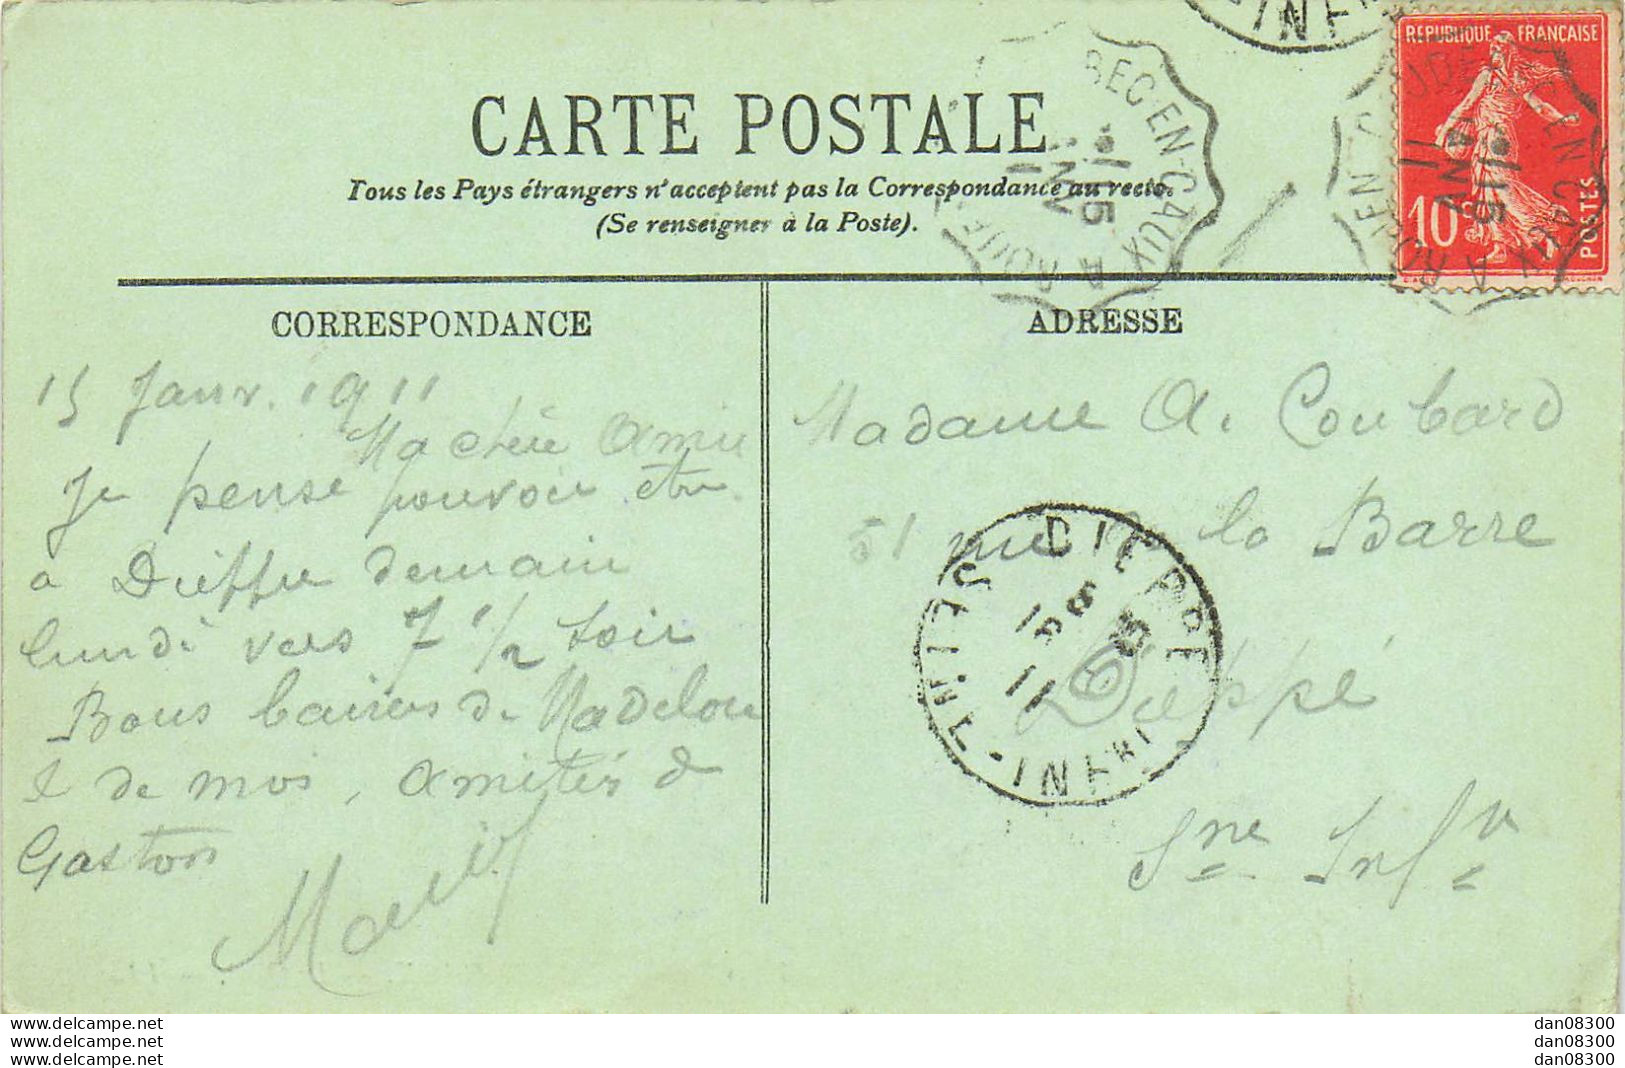 CARTE POSTALE
Tous les Pays étrangers n'acceptent pas la Correspondance au recto.
(Se renseigner à la Poste).
CORRESPONDANCE
15 Janv. 1911
Ma chère Amie
Je pense pouvoir être
a Dieppe demain
lundi vers 7 1/2 soir
Bons baisers de Madelon
& de moi, amitiés d
Gaston
ADRESSE
Madame A. Coubard
51 rue de la Barre
Dieppe
Sne Infre
REPUBLIQUE FRANÇAISE
10c
POSTES
BEC-EN-CAUX A ROUEN
15
JANV
11
CAUDEBEC-EN-CAUX A ROUEN
15
JANV
11
DIEPPE
16
11
SEINE-INFRE
INFRE
www.delcampe.net
www.delcampe.net
www.delcampe.net
dan08300
dan08300
dan08300